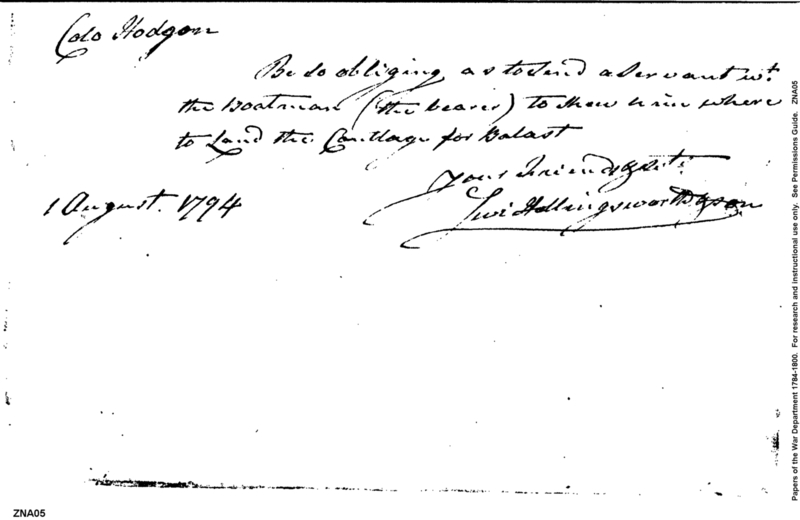 Colo Hodgon
Be so obliging as to Send a Servant wt.
the Boatman (the bearer) to shew him where
to Land the Cantlage for Balast
Your Friends &
1 August. 1794
Levi Hollingsworth & Son
ZNA05
Papers of the War Department 1784-1800. For research and instructional use only. See Permissions Guide. ZNA05